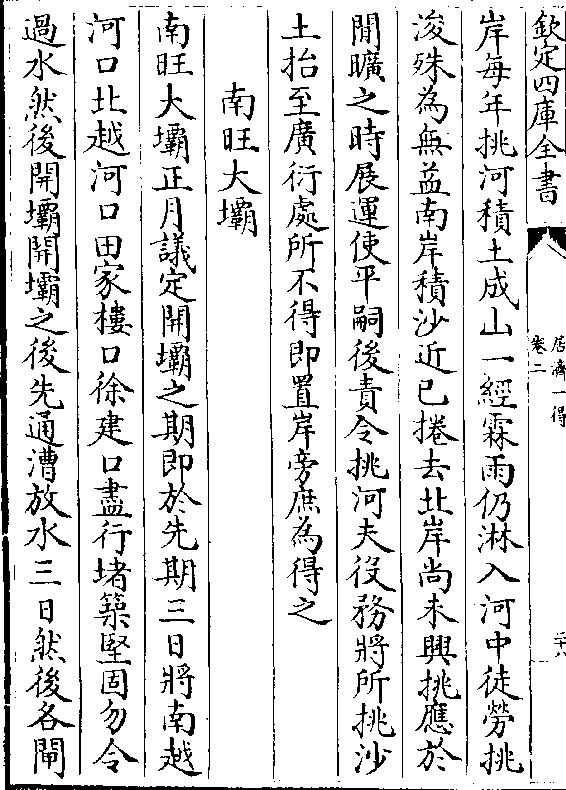 欽定四庫全書
居濟一得
卷二
二十八
岸每年挑河積土成山一經霖雨仍淋入河中徒勞挑
浚殊為無益南岸積沙近已捲去北岸尚未興挑應於
閒曠之時展運使平嗣後責令挑河夫役務將所挑沙
土抬至廣衍處所不得即置岸旁庶為得之
南旺大壩
南旺大壩正月議定開壩之期即於先期三日將南越
河口北越河口田家樓口徐建口盡行堵築堅固勿令
過水然後開壩開壩之後先通漕放水三日然後各閘